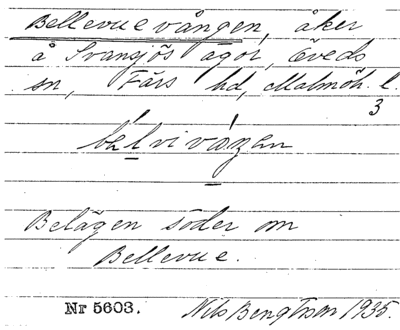 Bellevuevången, åker
å Svansjös ägor, Öveds
sn, Färs hd, Malmöh. l.
3
bèlvivàŋen
Belägen söder om
Bellevue.
Nr 5603. Nils Bengtsson 1935.